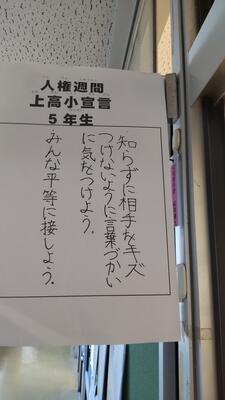 人権週間
上高小宣言
5年生
知らずに相手をキズ
つけないように言葉づかい
に気をつけよう。
みんな平等に接しよう。